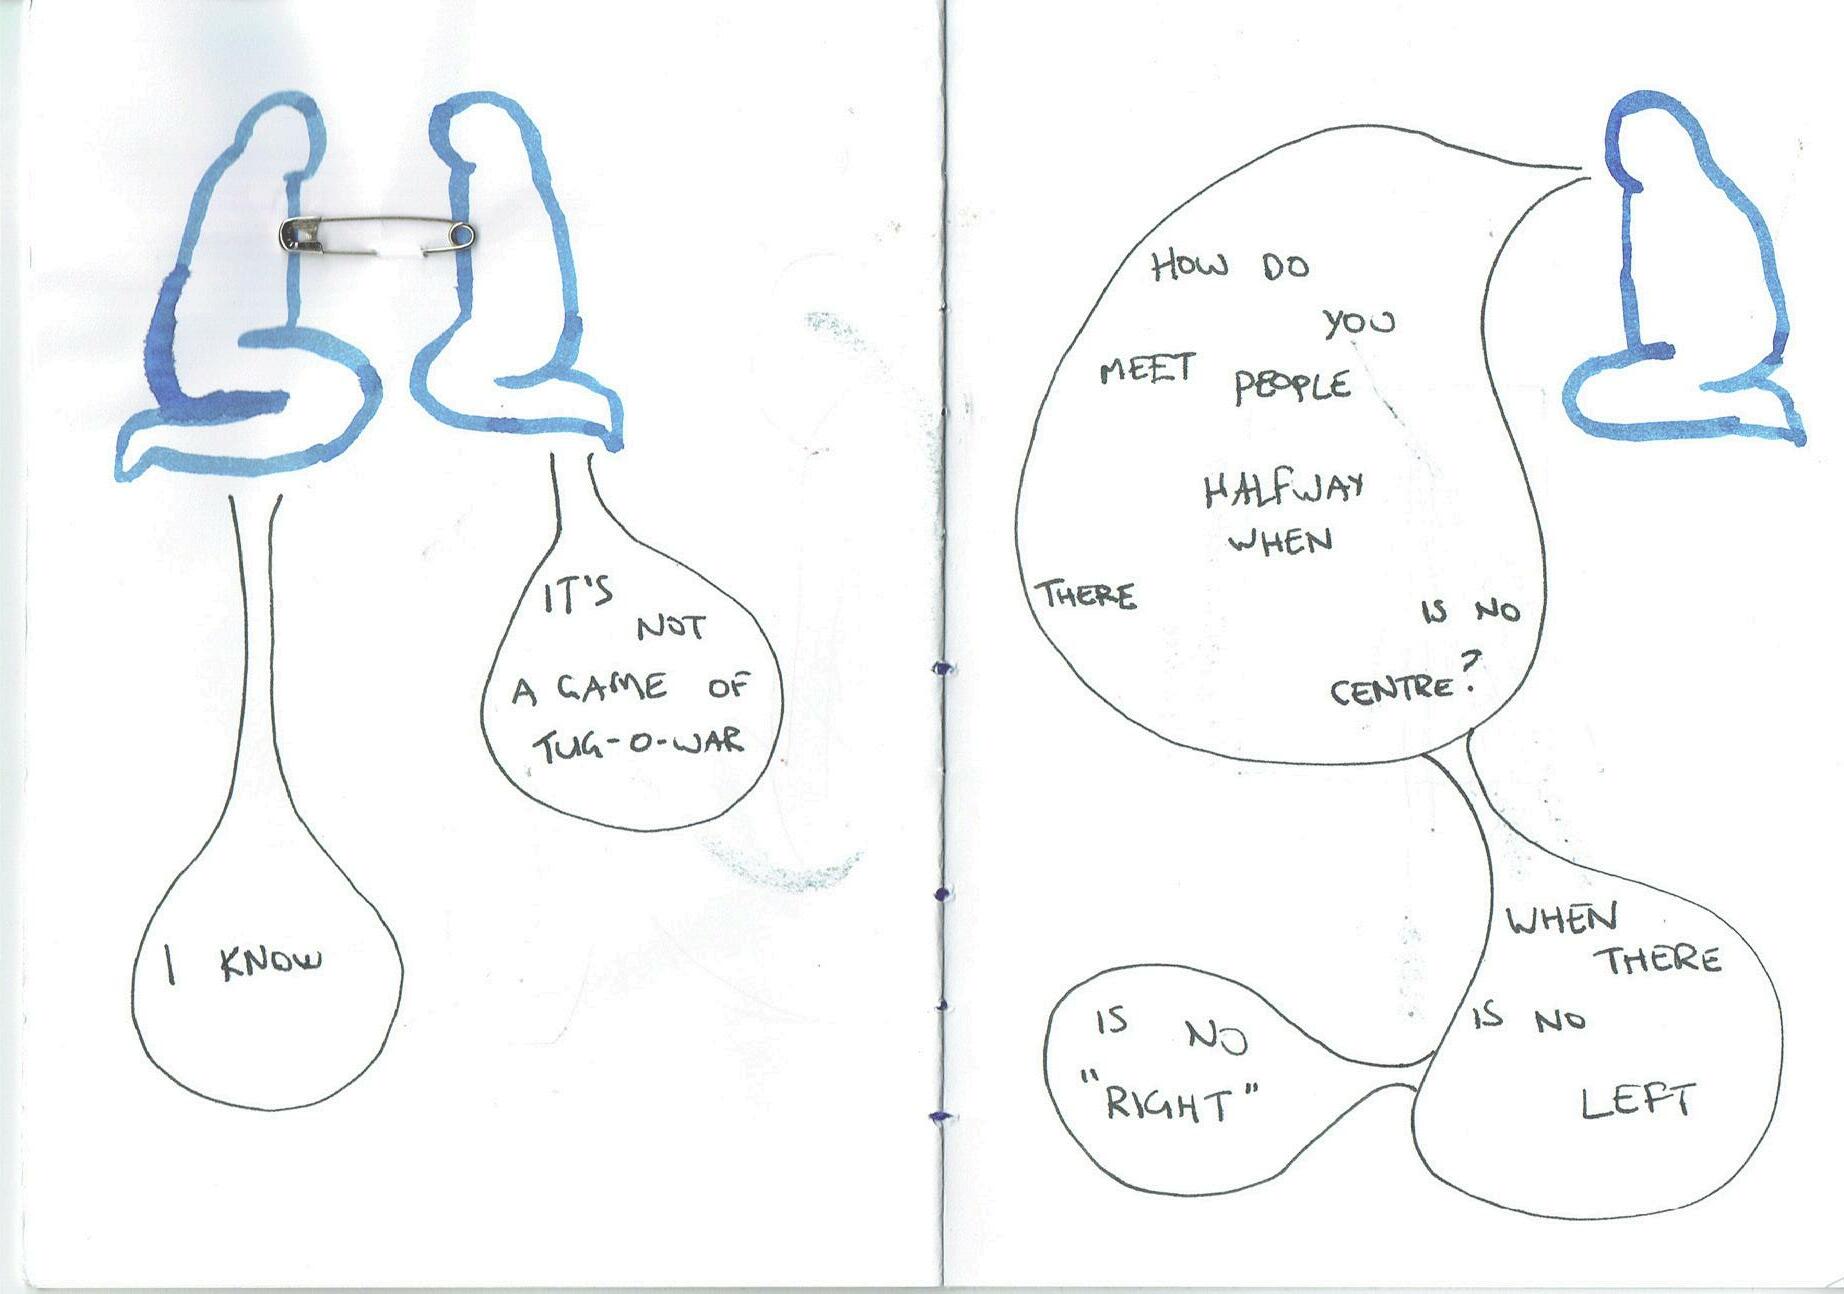 IT'S
NOT
A GAME OF
TUG-O-WAR
I KNOW
HOW DO
YOU
MEET PEOPLE
HALFWAY
WHEN
THERE IS NO
CENTRE?
WHEN
THERE
IS NO
LEFT
IS NO
"RIGHT"